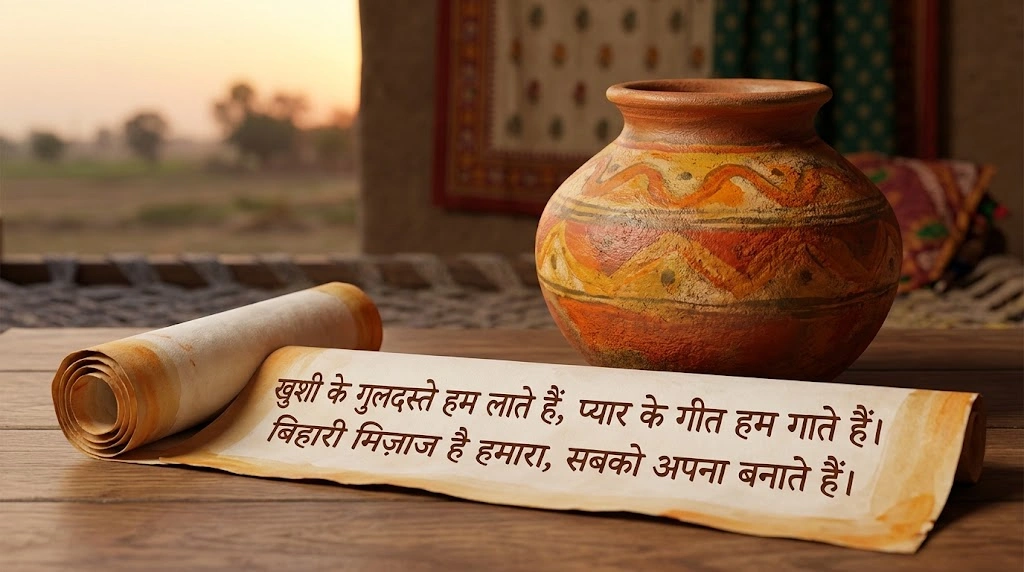 खुशी के गुलदस्ते हम लाते हैं, प्यार के गीत हम गाते हैं।
बिहारी मिज़ाज है हमारा, सबको अपना बनाते हैं।